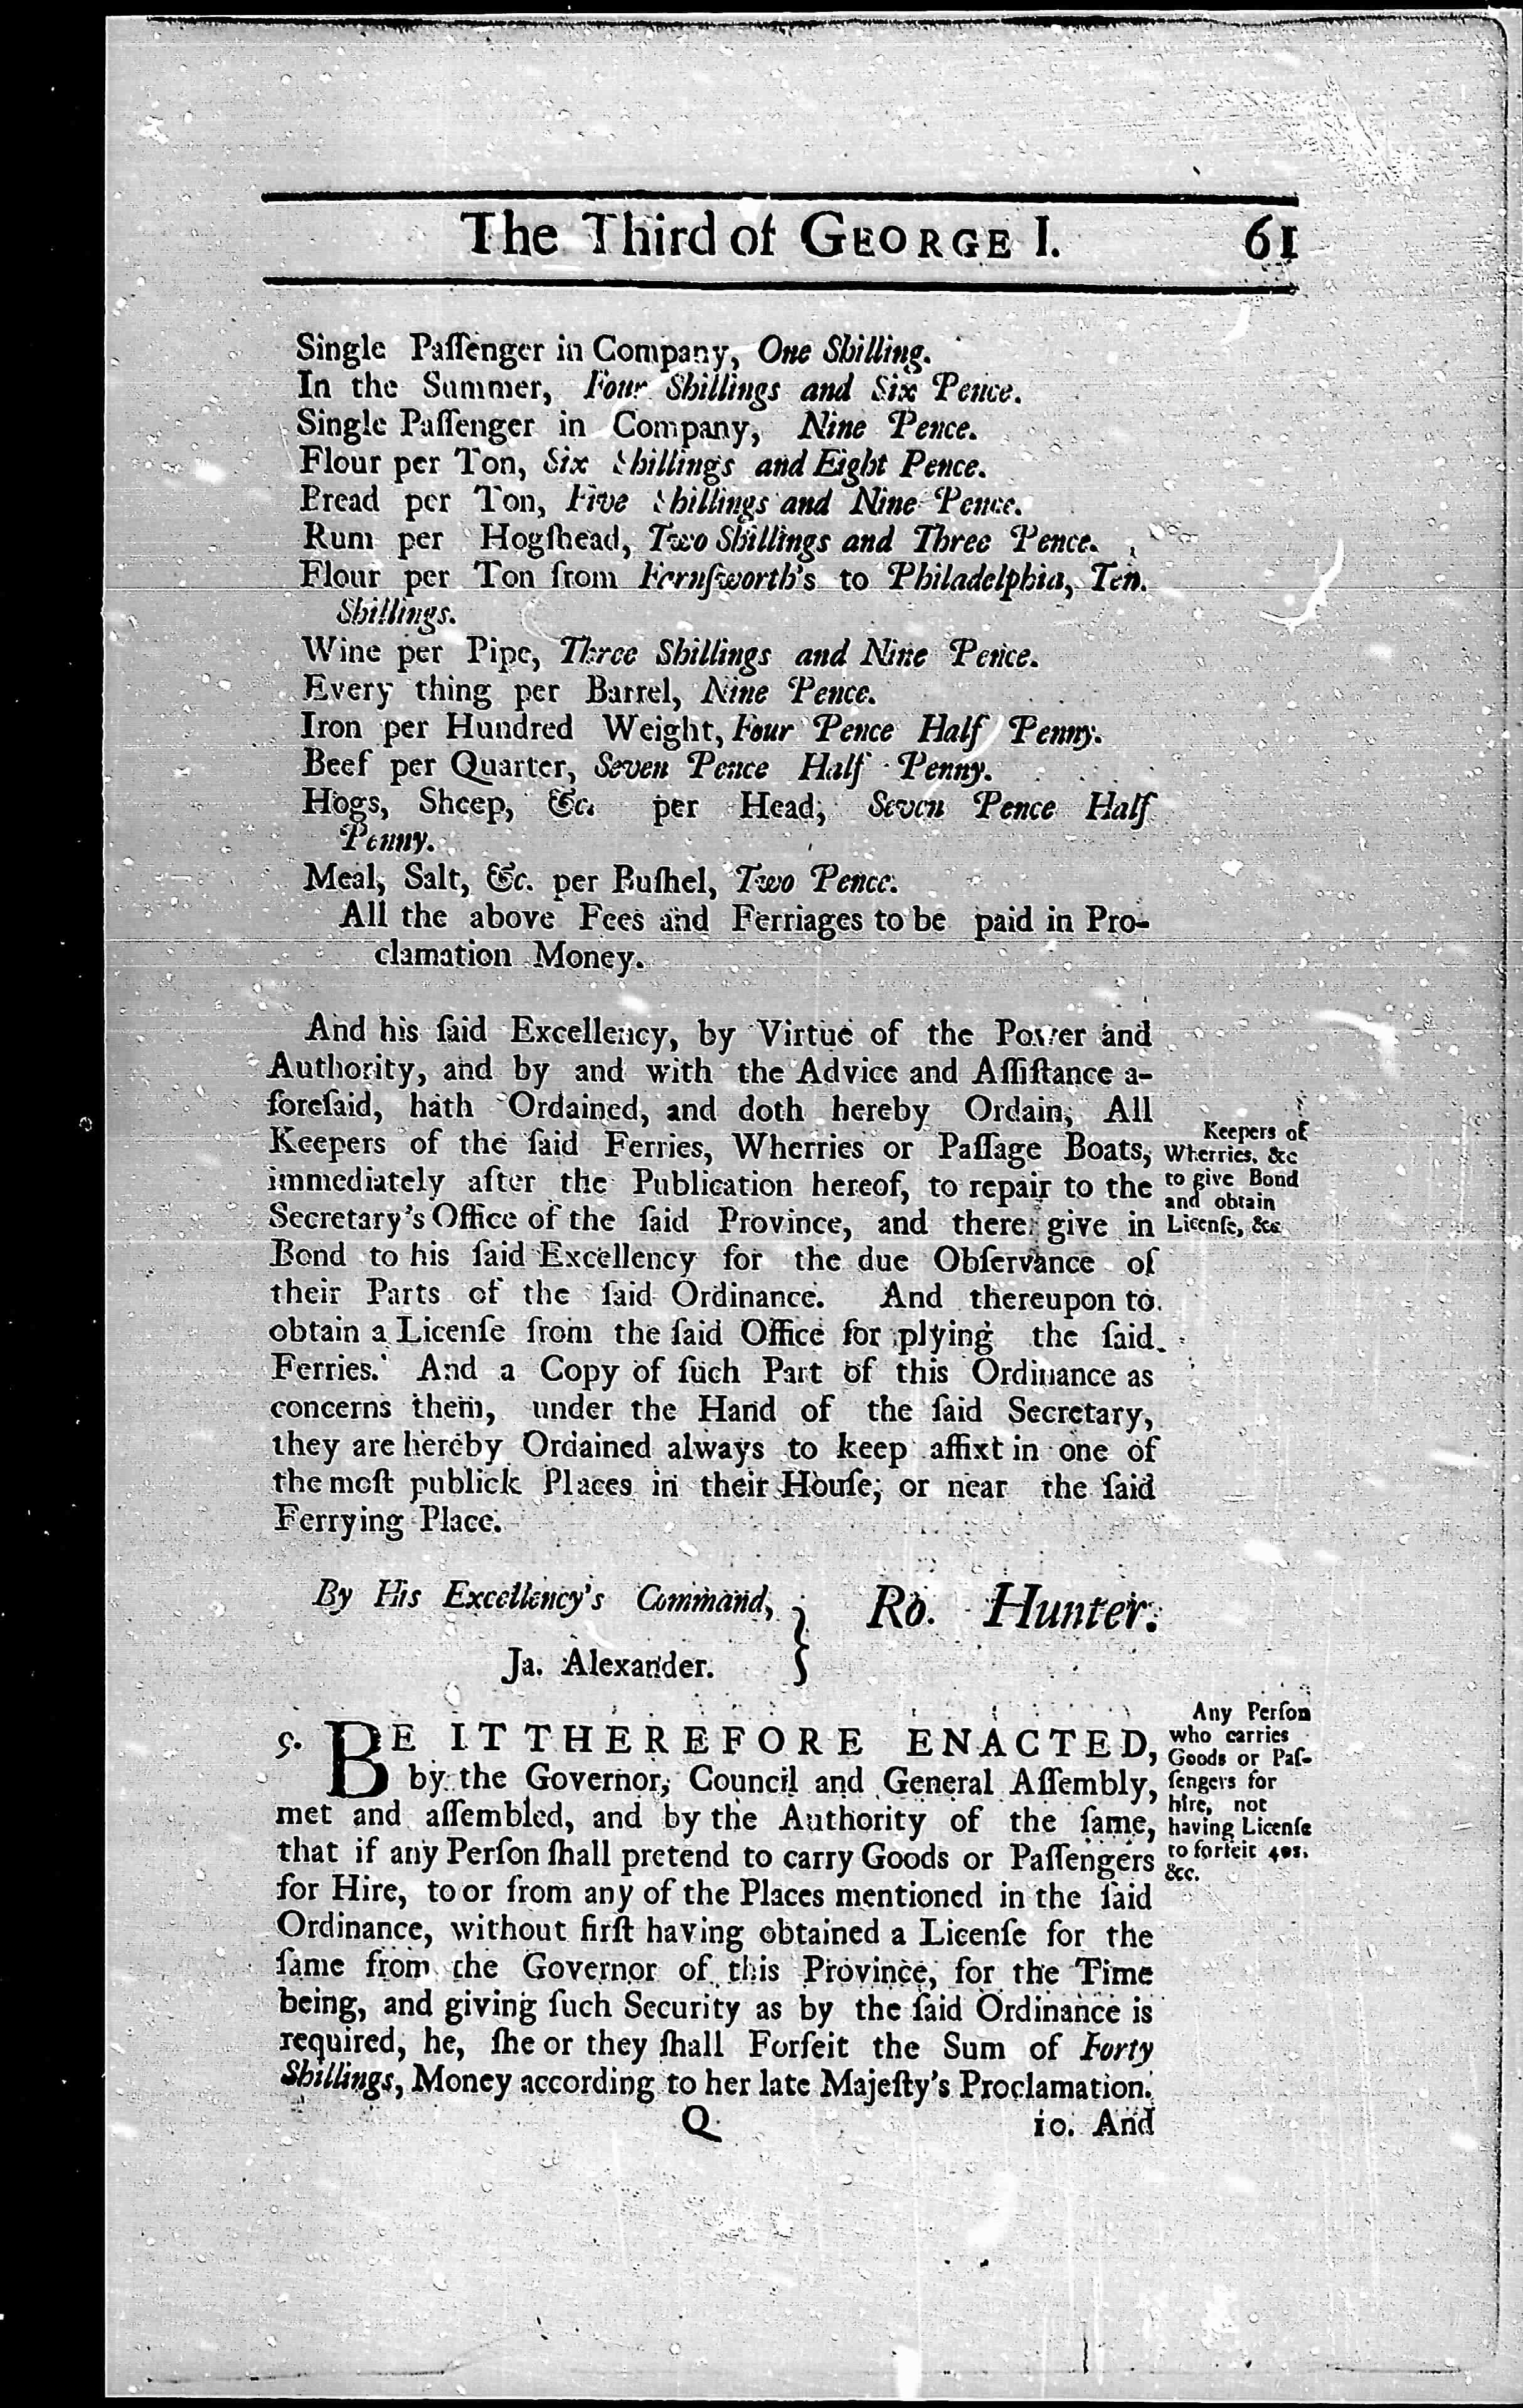 The Third of GEORGE I. 61
Single Paſſenger in Company, One Shilling.
In the Summer, Four Shillings and Six Pence.
Single Paſſenger in Company, Nine Pence.
Flour per Ton, Six Shillings and Eight Pence.
Bread per Ton, Five Shillings and Nine Pence.
Rum per Hogſhead, Two Shillings and Three Pence.
Flour per Ton from Fernſworth's to Philadelphia, Ten
Shillings.
Wine per Pipe, Three Shillings and Nine Pence.
Every thing per Barrel, Nine Pence.
Iron per Hundred Weight, Four Pence Half Penny.
Beef per Quarter, Seven Pence Half Penny.
Hogs, Sheep, &c. per Head, Seven Pence Half
Penny.
Meal, Salt, &c. per Buſhel, Two Pence.
All the above Fees and Ferriages to be paid in Pro-
clamation Money.
And his ſaid Excellency, by Virtue of the Power and
Authority, and by and with the Advice and Aſſiſtance a-
foreſaid, hath Ordained, and doth hereby Ordain, All
Keepers of the ſaid Ferries, Wherries or Paſſage Boats,
immediately after the Publication hereof, to repair to the
Secretary's Office of the ſaid Province, and there give in
Bond to his ſaid Excellency for the due Obſervance of
their Parts of the ſaid Ordinance. And thereupon to
obtain a Licenſe from the ſaid Office for plying the ſaid
Ferries. And a Copy of ſuch Part of this Ordinance as
concerns them, under the Hand of the ſaid Secretary,
they are hereby Ordained always to keep affixt in one of
the moſt publick Places in their Houſe, or near the ſaid
Ferrying Place.
Keepers of
Wherries, &c
to give Bond
and obtain
Licenſe, &c.
By His Excellency's Command, } Ro. Hunter.
Ja. Alexander.
9. BE IT THEREFORE ENACTED,
by the Governor, Council and General Aſſembly,
met and aſſembled, and by the Authority of the ſame,
that if any Perſon ſhall pretend to carry Goods or Paſſengers
for Hire, to or from any of the Places mentioned in the ſaid
Ordinance, without firſt having obtained a Licenſe for the
ſame from the Governor of this Province, for the Time
being, and giving ſuch Security as by the ſaid Ordinance is
required, he, ſhe or they ſhall Forfeit the Sum of Forty
Shillings, Money according to her late Majeſty's Proclamation.
Any Perſon
who carries
Goods or Paſ-
ſengers for
hire, not
having Licenſe
to forfeit 40s.
&c.
Q 10. And